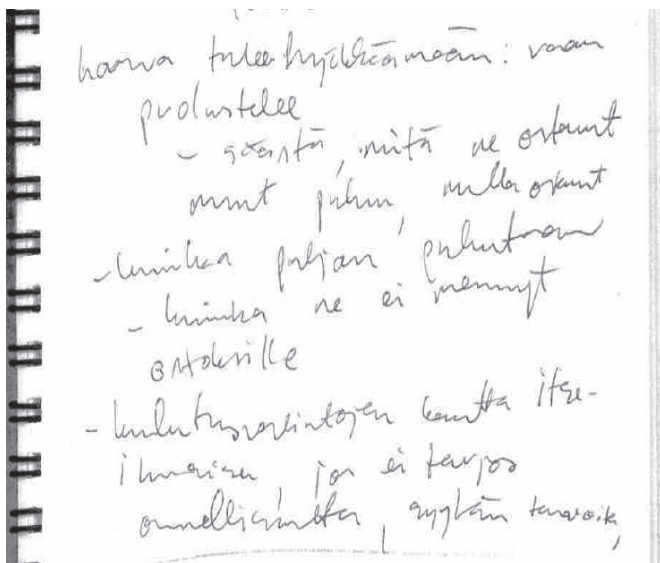 harva tulee hyökkäämään: vaan
puolustelee
- säästä, mitä ne ostanut
muut puhuu,
- kuinka paljon puhutaan
- kuinka ne ei mennyt
ostoksille
- kulutusvalintojen kautta itse-
ilmaisu, jos ei tarjoa
onnellisuutta, tavaroita,